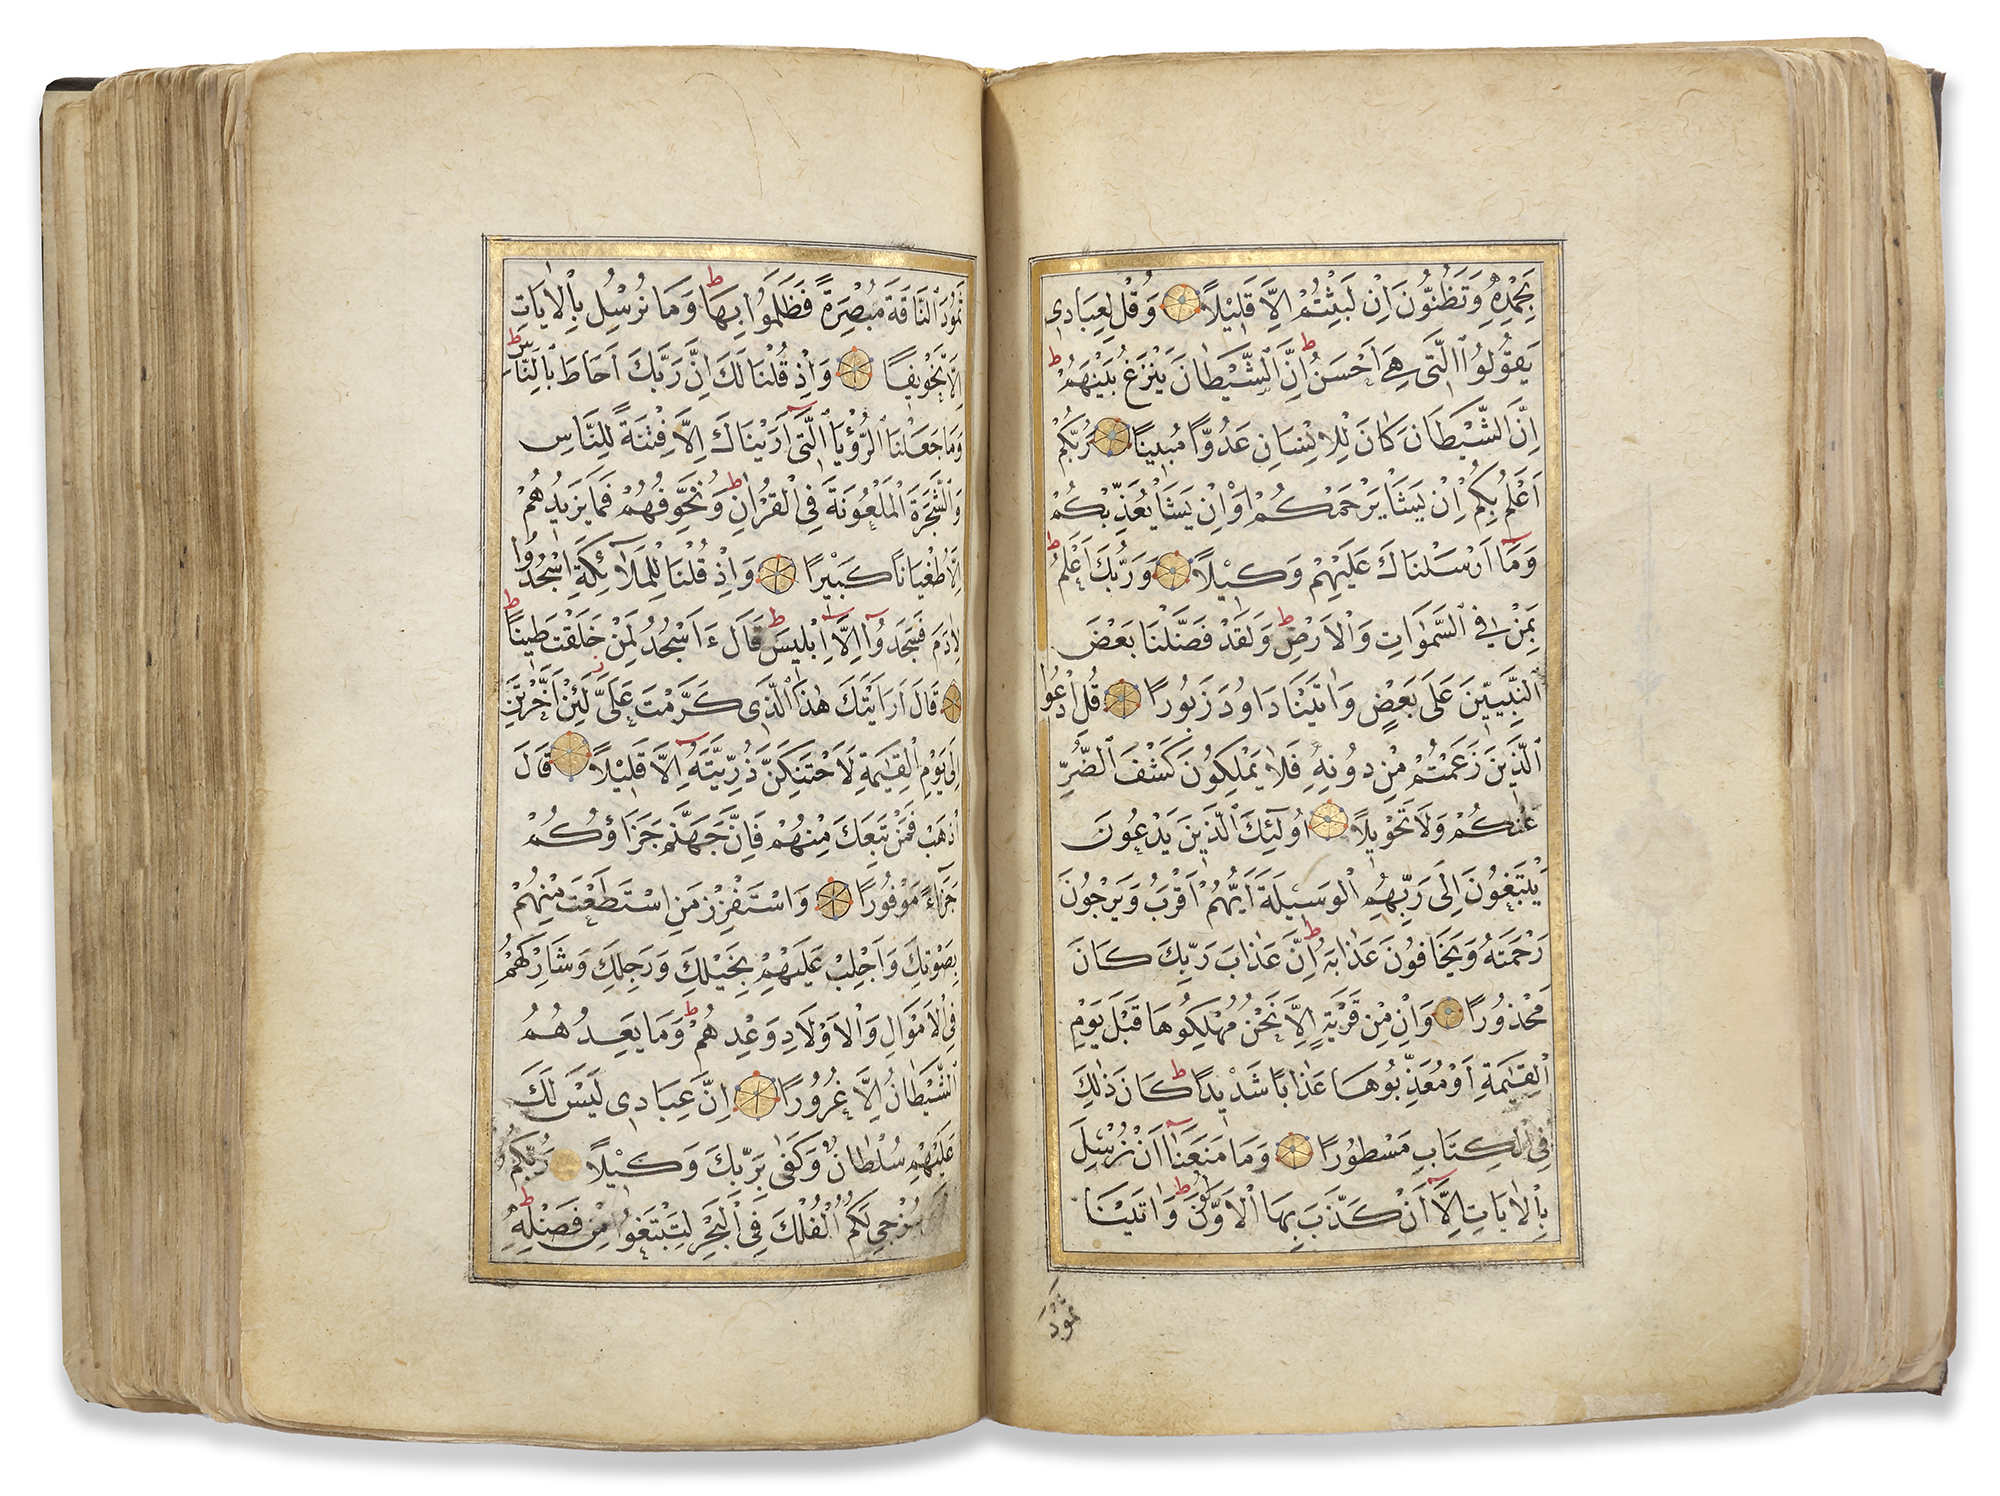 بِحَمْدِهِ وَتَظُنُّونَ اِنْ لَبِثْتُمْ اِلَّا قَلِيْلاً وَقُلْ لِعِبَادِى
يَقُولُوا الَّتِى هِىَ اَحْسَنُ ط اِنَّ الشَّيْطَانَ يَنْزَغُ بَيْنَهُمْ ط
اِنَّ الشَّيْطَانَ كَانَ لِلْاِنْسَانِ عَدُوًّا مُبِينًا رَبُّكُمْ
اَعْلَمُ بِكُمْ اِنْ يَشَأْ يَرْحَمْكُمْ اَوْ اِنْ يَشَأْ يُعَذِّبْكُمْ
وَمَا اَرْسَلْنَاكَ عَلَيْهِمْ وَكِيْلاً وَرَبُّكَ اَعْلَمُ ط
بِمَنْ فِى السَّمٰوَاتِ وَالْاَرْضِ ط وَلَقَدْ فَضَّلْنَا بَعْضَ
النَّبِيّينَ عَلَى بَعْضٍ وَاٰتَيْنَا دَاوُدَ زَبُورًا قُلِ ادْعُوا
الَّذِينَ زَعَمْتُمْ مِنْ دُونِهِ فَلَا يَمْلِكُونَ كَشْفَ الضُّرِّ
عَنْكُمْ وَلَا تَحْوِيلاً اُولٰٓئِكَ الَّذِينَ يَدْعُونَ
يَبْتَغُونَ اِلَى رَبِّهِمُ الْوَسِيْلَةَ اَيُّهُمْ اَقْرَبُ وَيَرْجُونَ
رَحْمَتَهُ وَيَخَافُونَ عَذَابَهُ ط اِنَّ عَذَابَ رَبِّكَ كَانَ
مَحْذُورًا وَاِنْ مِنْ قَرْيَةٍ اِلَّا نَحْنُ مُهْلِكُوهَا قَبْلَ يَوْمِ
الْقِيٰمَةِ اَوْ مُعَذِّبُوهَا عَذَابًا شَدْيدًا ط كَانَ ذٰلِكَ
فِى الْكِتَابِ مَسْطُورًا وَمَا مَنَعَنَا اَنْ نُرْسِلَ
بِالْاٰيَاتِ اِلَّا اَنْ كَذَّبَ بِهَا الْاَوَّلُونَ ط وَاٰتَيْنَا
ثَمُودَ
ثَمُودَ النَّاقَةَ مُبْصِرَةً فَظَلَمُوا بِهَا ط وَمَا نُرْسِلُ بِالْاٰيَاتِ
اِلَّا تَخْوِيفًا وَاِذْ قُلْنَا لَكَ اِنَّ رَبَّكَ اَحَاطَ بِالنَّاسِ ط
وَمَا جَعَلْنَا الرُّؤْيَا الَّتِى اَرَيْنَاكَ اِلَّا فِتْنَةً لِلنَّاسِ
وَالشَّجَرَةَ الْمَلْعُونَةَ فِى الْقُرْاٰنِ ط وَنُخَوِّفُهُمْ فَمَا يَزِيدُهُمْ
اِلَّا طُغْيَانًا كَبِيْرًا وَاِذْ قُلْنَا لِلْمَلٰٓئِكَةِ اسْجُدُوا
لِاٰدَمَ فَسَجَدُوا اِلَّا اِبْلِيسَ ط قَالَ ءَاَسْجُدُ لِمَنْ خَلَقْتَ طِينًا ط
قَالَ اَرَاَيْتَكَ هٰذَا الَّذِى كَرَّمْتَ عَلَىَّ لَئِنْ اَخَّرْتَنِ
اِلَى يَوْمِ الْقِيٰمَةِ لَاَحْتَنِكَنَّ ذُرِّيَّتَهُ اِلَّا قَلِيْلاً قَالَ
اذْهَبْ فَمَنْ تَبِعَكَ مِنْهُمْ فَاِنَّ جَهَنَّمَ جَزَاؤُكُمْ
جَزَاءً مَوْفُورًا وَاسْتَفْزِزْ مَنِ اسْتَطَعْتَ مِنْهُمْ
بِصَوْتِكَ وَاَجْلِبْ عَلَيْهِمْ بِخَيْلِكَ وَرَجِلِكَ وَشَارِكْهُمْ
فِى الْاَمْوَالِ وَالْاَوْلَادِ وَعِدْهُمْ ط وَمَا يَعِدُهُمُ
الشَّيْطَانُ اِلَّا غُرُورًا اِنَّ عِبَادِى لَيْسَ لَكَ
عَلَيْهِمْ سُلْطَانٌ وَكَفَى بِرَبِّكَ وَكِيْلاً رَبُّكُمُ
يُزْجِى لَكُمُ الْفُلْكَ فِى الْبَحْرِ لِتَبْتَغُوا مِنْ فَضْلِهِ ط